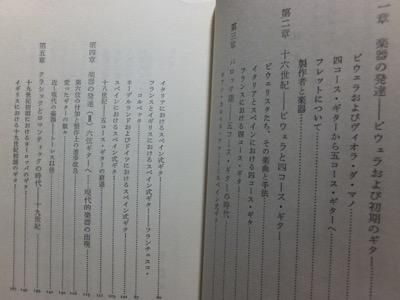 一章 楽器の発達――ビウェラおよび初期のギタ
ビウェラおよびヴィオラ・ダ・マノ
四コース・ギターから五コース・ギターへ
フレットについて
製作者と楽器
第二章 十六世紀――ビウェラと四コース・ギタ
ビウェリスタたち、その楽曲と手法
イタリアとスペインにおける四コース・ギタ
フランスにおける四コース・ギター
第三章 バロック
五コース・ギターの時代
イタリアにおけるスペイン式ギター
フランスとイギリスにおけるスペイン式ギター――フランチェスコ・
コルベ
ネーデルランドおよびドイツにおけるスペイン式ギター
スペインにおけるスペイン式ギター
十八世紀――五コース・ギターの衰退
第四章 楽器の発達（Ⅱ）六弦ギターへ――現代的楽器の出現
第六弦の付加と製作上の進歩改良
変ったギターの数々
近代の楽器――トーレス以後
第五章 クラシックとロマンティックの時代――十九世紀
十九世紀初頭におけるヨーロッパのギター
イギリスにおける十九世紀初頭の